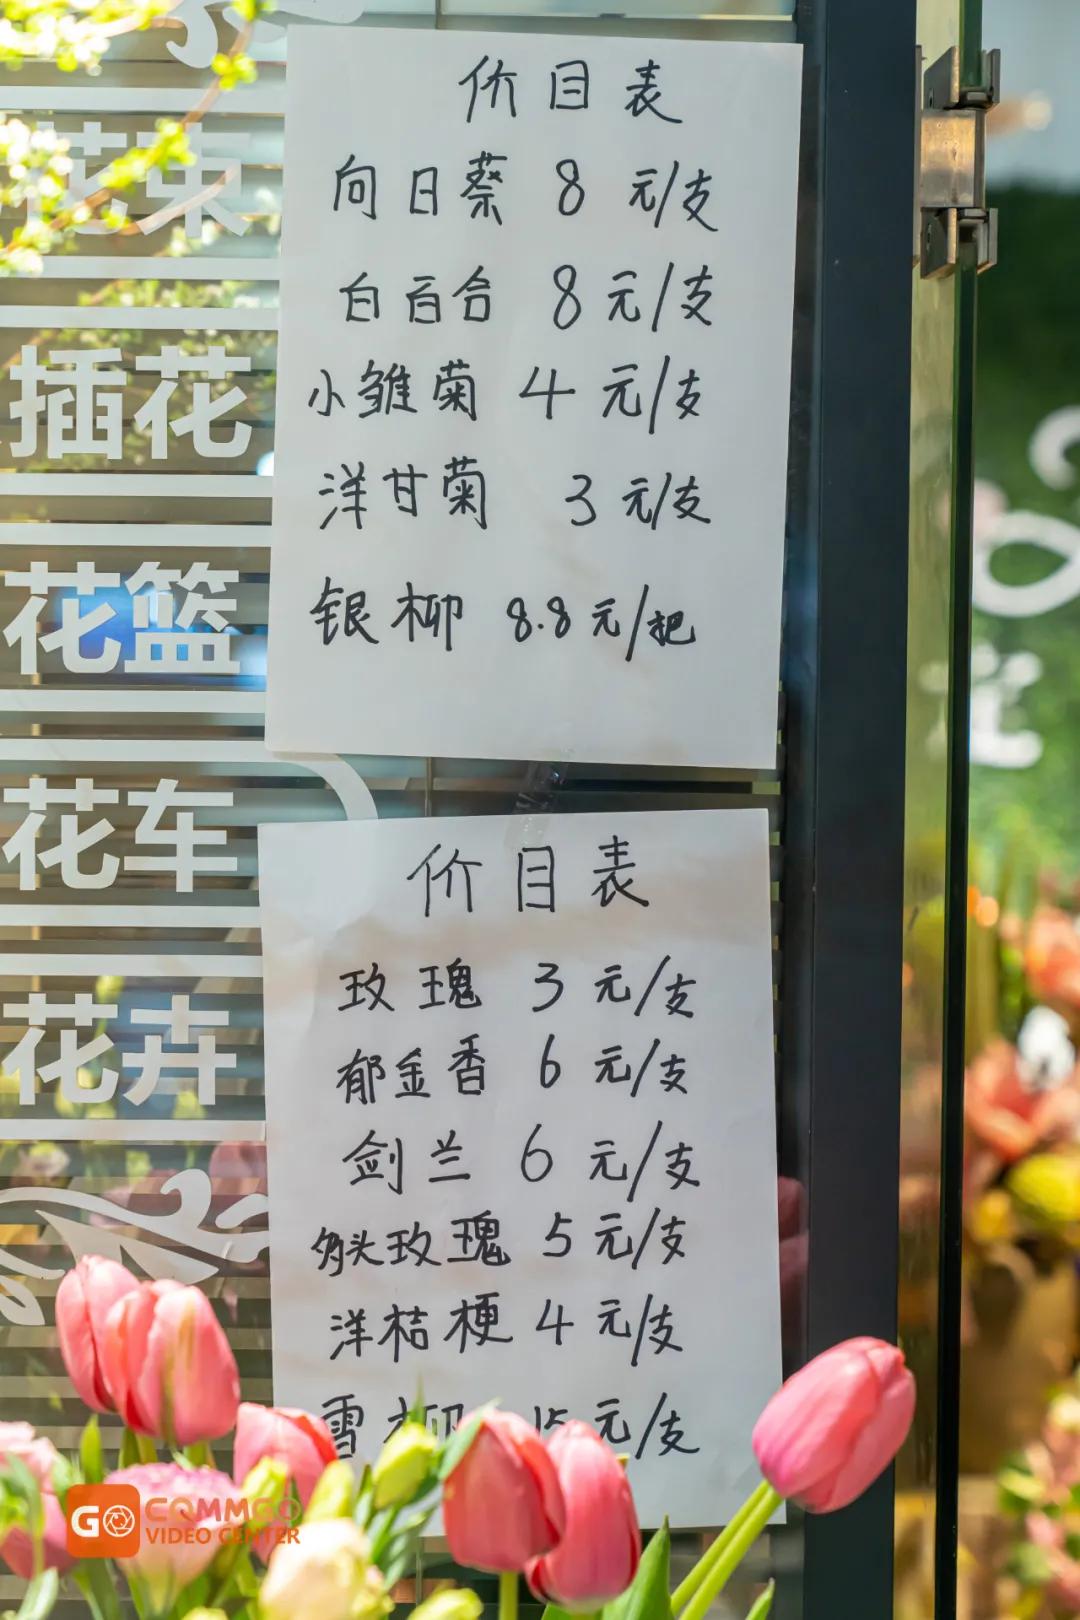 价目表
向日葵 8 元/支
白百合 8 元/支
小雏菊 4 元/支
洋甘菊 3 元/支
银柳 8.8 元/把
价目表
玫瑰 3 元/支
郁金香 6 元/支
剑兰 6 元/支
多头玫瑰 5 元/支
洋桔梗 4 元/支
雪柳 15 元/支
花束
插花
花篮
花车
花卉
花
GO COMMGO
VIDEO CENTER